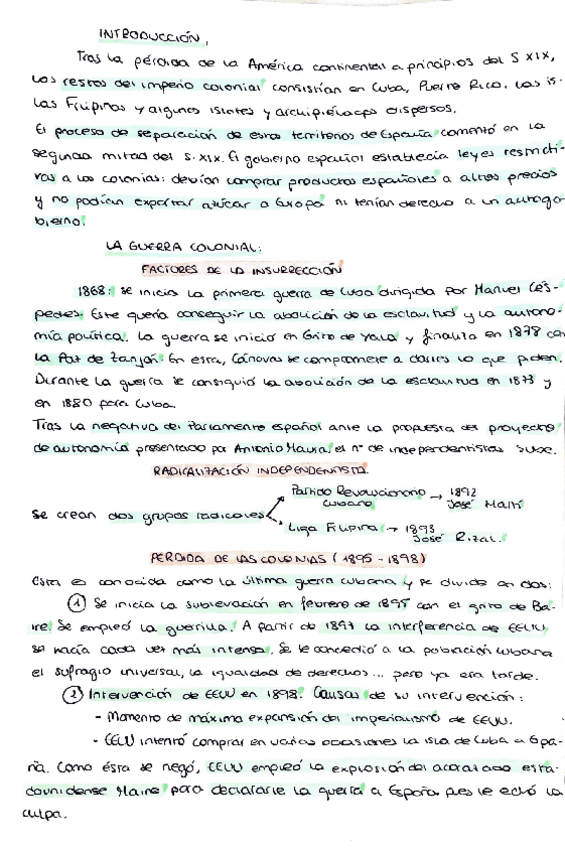 INTRODUCCIÓN,
Tras la pérdida de la América continental a principios del S XIX,
los restos del imperio colonial consistían en Cuba, Puerto Rico, las is-
las Filipinas y algunos islotes y archipiélagos dispersos.
El proceso de separación de estos territorios de España comentó en la
segunda mitad del s. XIX. El gobierno español establecía leyes restricti-
vas a las colonias: debían comprar productos españoles a altos precios
y no podían exportar azúcar a Europa ni tenían derecho a un autogo-
bierno.
LA GUERRA COLONIAL:
FACTORES DE LA INSURRECCIÓN
1868: se inicia la primera guerra de Cuba dirigida por Manuel Cés-
pedes. Este quería conseguir la abolición de la esclavitud y la autono-
mía política. La guerra se inicio en Grito de Yara y finaliza en 1878 con
la Paz de Zanjón. En esta, Cánovas se compromete a darles lo que piden.
Durante la guerra se consiguió la abolición de la esclavitud en 1873 y
en 1880 para Cuba.
Tras la negativa del Parlamento español ante la propuesta del proyecto
de autonomía presentado por Antonio Maura, el nº de independentistas sube.
RADICALIZACIÓN INDEPENDENTISTA.
Partido Revolucionario → 1892
Cubano José Martí
Se crean dos grupos radicales
Liga Filipina → 1893
José Rizal.
PÉRDIDA DE LAS COLONIAS (1895-1898)
Esta es conocida como la última guerra cubana y se divide en dos:
① Se inicia la sublevación en febrero de 1895 con el grito de Ba-
ire. Se empleó la guerrilla. A partir de 1897 la interferencia de EEUU
se hacía cada vez más intensa. Se le concedió a la población cubana
el sufragio universal, la igualdad de derechos... pero ya era tarde.
② Intervención de EEUU en 1898. Causas de su intervención:
- Momento de máxima expansión del imperialismo de EEUU.
- EEUU intentó comprar en varias ocasiones la isla de Cuba a Espa-
ña. Como ésta se negó, EEUU empleó la explosión del acorazado esta-
dounidense Maine para declararle la guerra a España pues le echó la
culpa.